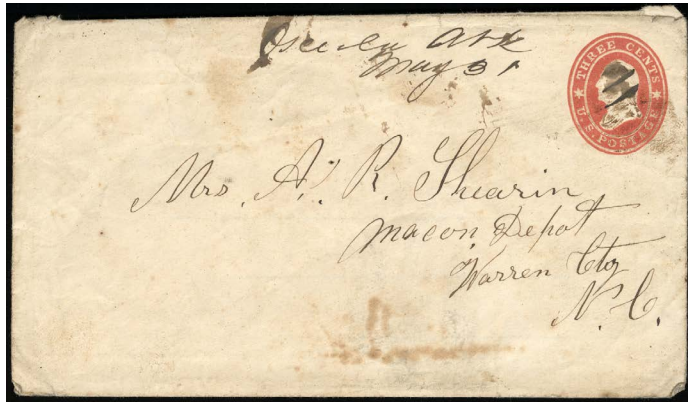 Osceola Ark
May 31
THREE CENTS
U.S. POSTAGE
Mrs. A. R. Shearin
Macon Depot
Warren Cty
N. C.